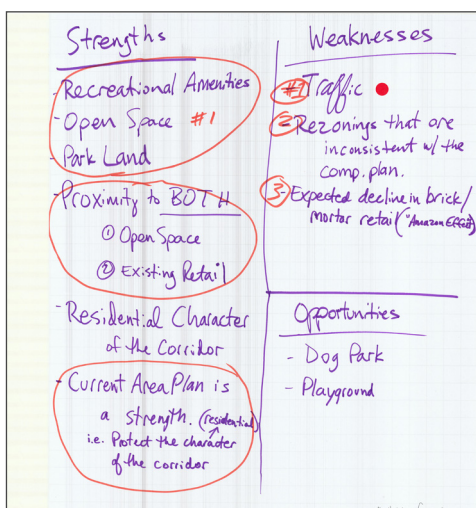 Strengths
- Recreational Amenities
- Open Space #1
- Park Land
- Proximity to BOTH
① Open Space
② Existing Retail
- Residential Character
of the Corridor
- Current Area Plan is
a strength. (residential)
i.e. Protect the character
of the corridor
Weaknesses
#1 Traffic
2 - Rezonings that are
inconsistent w/ the
comp. plan.
3 - Expected decline in brick/
mortar retail ("Amazon Effect")
Opportunities
- Dog Park
- Playground